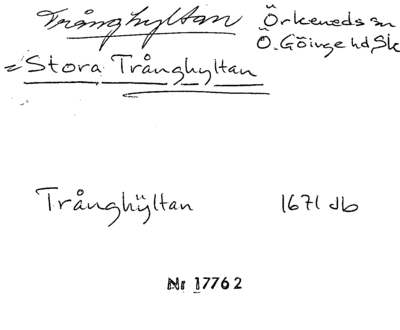 Trånghyltan Örkeneds sn
Ö. Göinge hd, Sk
= Stora Trånghyltan
Trånghÿltan 1671 Jb
Nr 17762